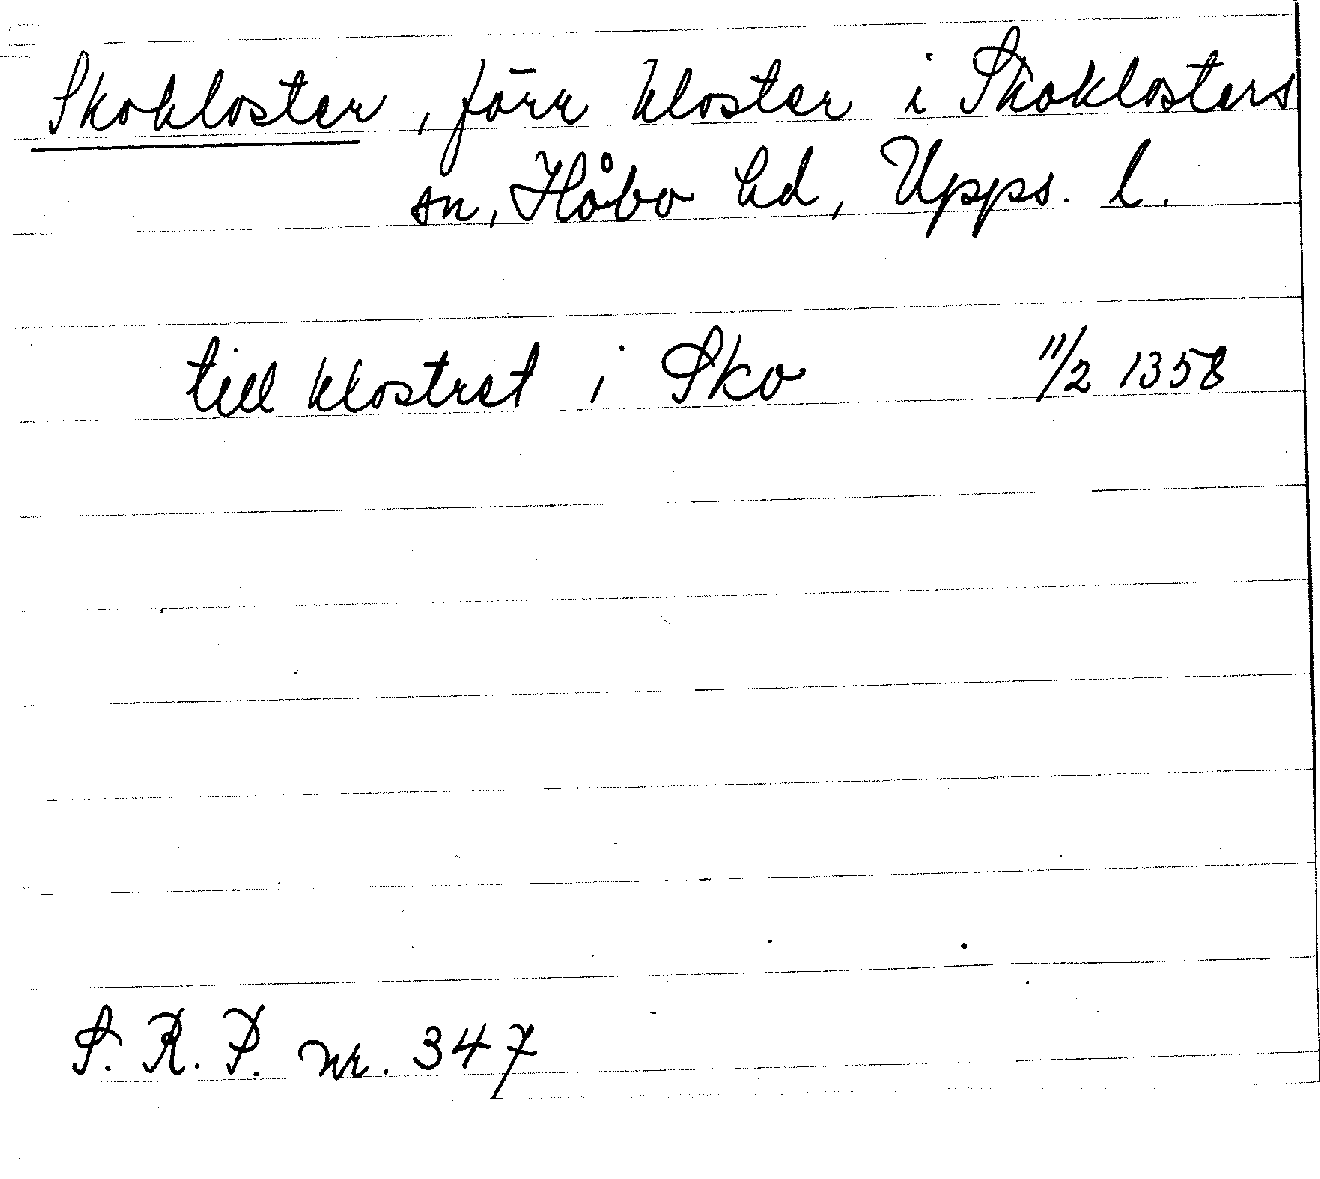 Skokloster, förr kloster i Skoklosters
sn, Håbo hd, Upps. l.
till klostret i Sko 11/2 1358
S. R. P. nr. 347